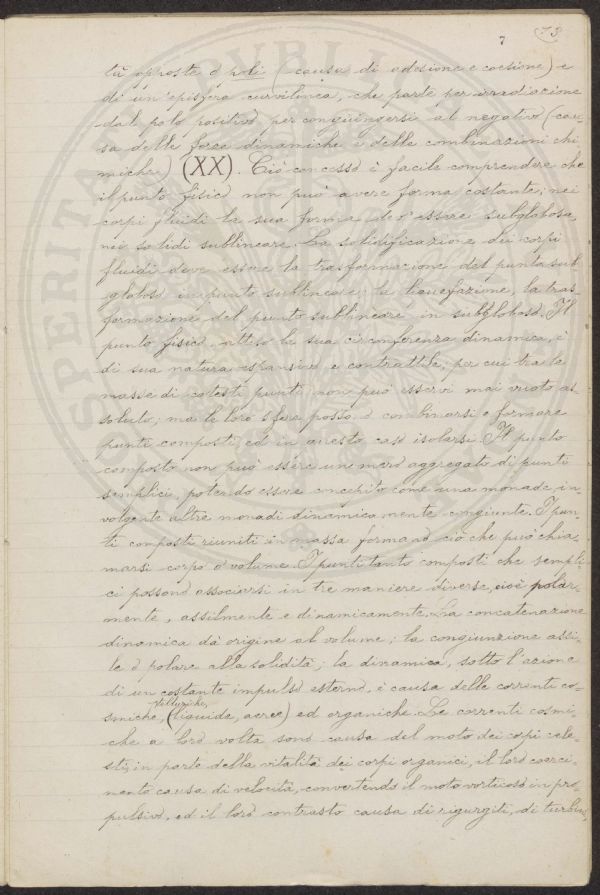 7 73
tù opposte o poli (causa di adesione e coesione) e
di un'episfera curvilinea, che parte per irradiazione
dal polo positivo per congiungersi al negativo (cau-
sa delle forze dinamiche e delle combinazioni chi-
miche) (XX). Ciò concesso è facile comprendere che
il punto fisico non può avere forma costante; nei
corpi fluidi la sua forma dev'essere subglobosa,
nei solidi sublineare. La solidificazione dei corpi
fluidi deve essere la trasformazione del punto sub-
globoso in punto sublineare; la liquefazione, la tras-
formazione del punto sublineare in subgloboso. Il
punto fisico, atteso la sua circonferenza dinamica, è
di sua natura espansivo e contrattile; per cui tra le
masse di cotesti punti non può esservi mai vuoto as-
soluto; ma le loro sfere possono combinarsi e formare
punti composti, ed in questo caso isolarsi. Il punto
composto non può essere un mero aggregato di punti
semplici, potendo essere concepito come una monade in-
volgente altre monadi dinamicamente congiunte. I pun-
ti composti riuniti in massa formano ciò che può chia-
marsi corpo o volume. I punti tanto composti che sempli-
ci possono associarsi in tre maniere diverse, cioè polar-
mente, assilmente e dinamicamente. La concatenazione
dinamica dà origine al volume; la congiunzione assi-
le o polare alla solidità; la dinamica, sotto l'azione
di un costante impulso esterno, è causa delle correnti co-
telluriche,
smiche, (liquide, aeree) ed organiche. Le correnti cosmi-
che a loro volta sono causa del moto dei corpi cele-
sti, in parte della vitalità dei corpi organici, il loro coerci-
mento causa di velocità, convertendo il moto vorticoso in pro-
pulsivo, ed il loro contrasto causa di rigurgiti, di turbini,